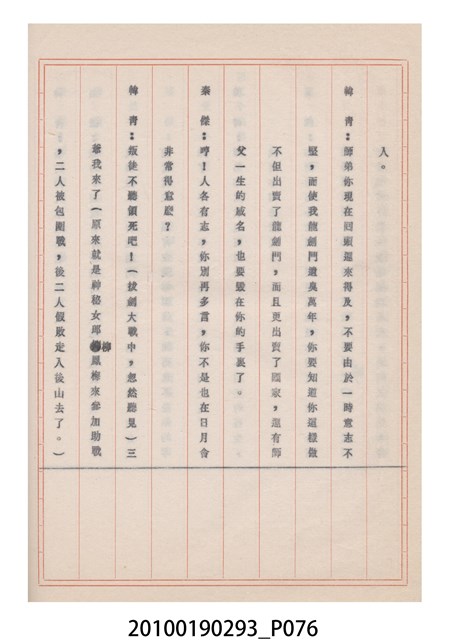 人。
韓　青：師弟你現在回頭還來得及，不要由於一時意志不
堅，而使我龍劍門遺臭萬年，你要知道你這樣做
不但出賣了龍劍門，而且更出賣了國家，還有師
父一生的威名，也要毀在你的手裏了。
秦　傑：哼！人各有志，你別再多言，你不是也在日月會
非常得意麼？
韓　青：叛徒不聽領死吧！（拔劍大戰中，忽然聽見）三
爺我來了（原來就是神秘女郎柳鳳柳來參加助戰
，二人被包圍戰，後二人假敗走入後山去了。）
20100190293_P076